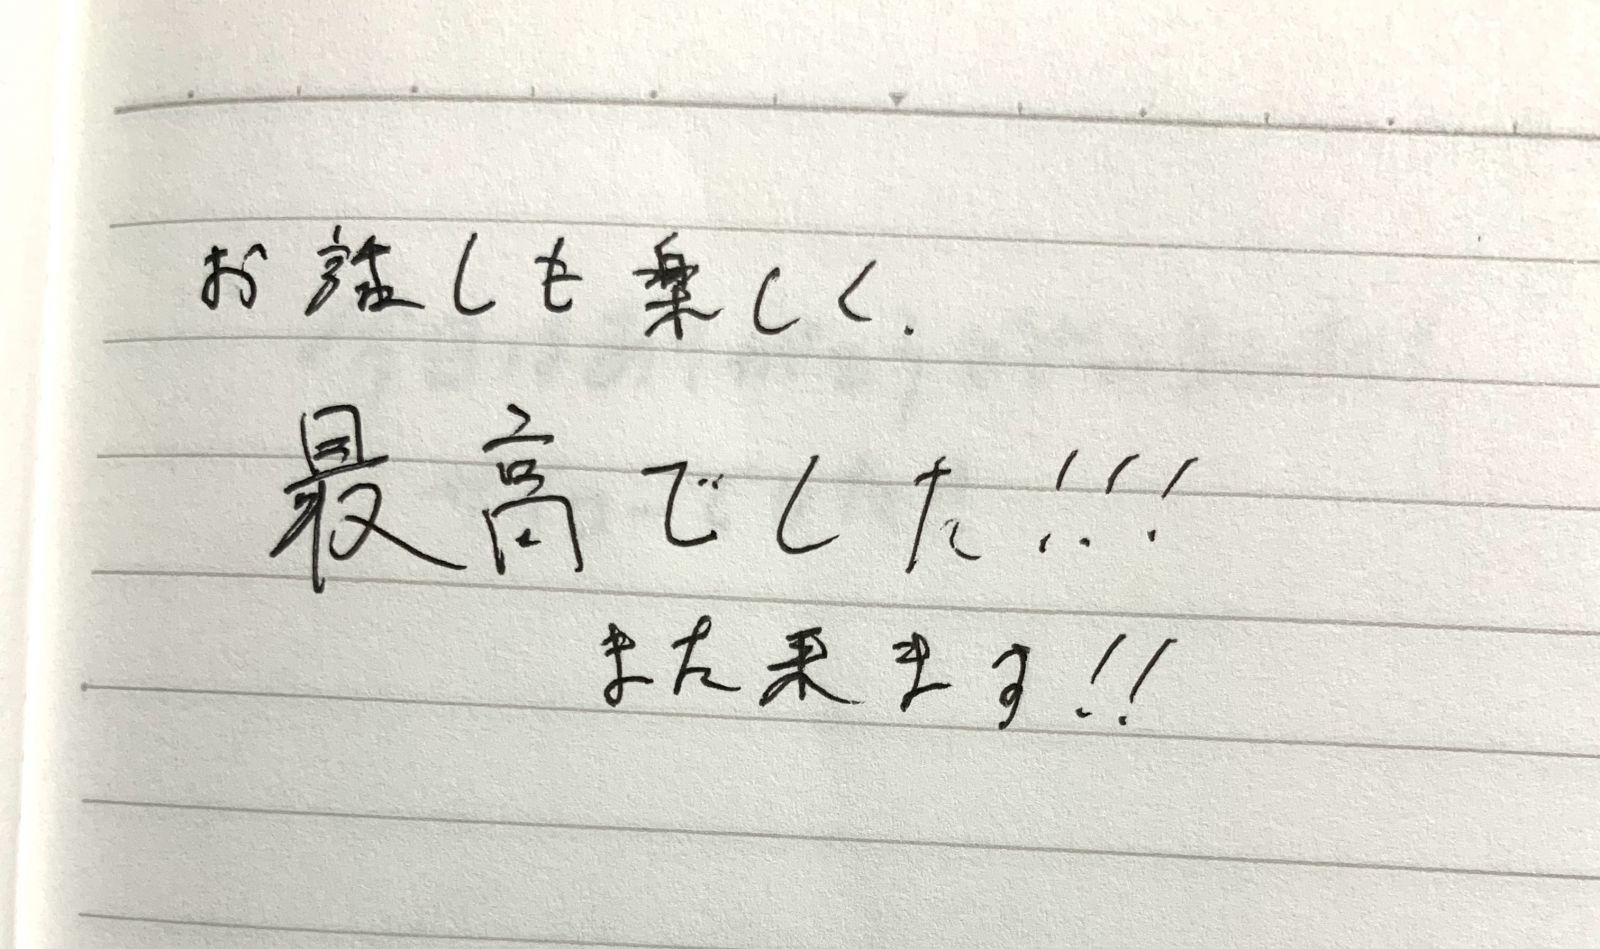 お話しも楽しく.
最高でした!!!
また来ます!!